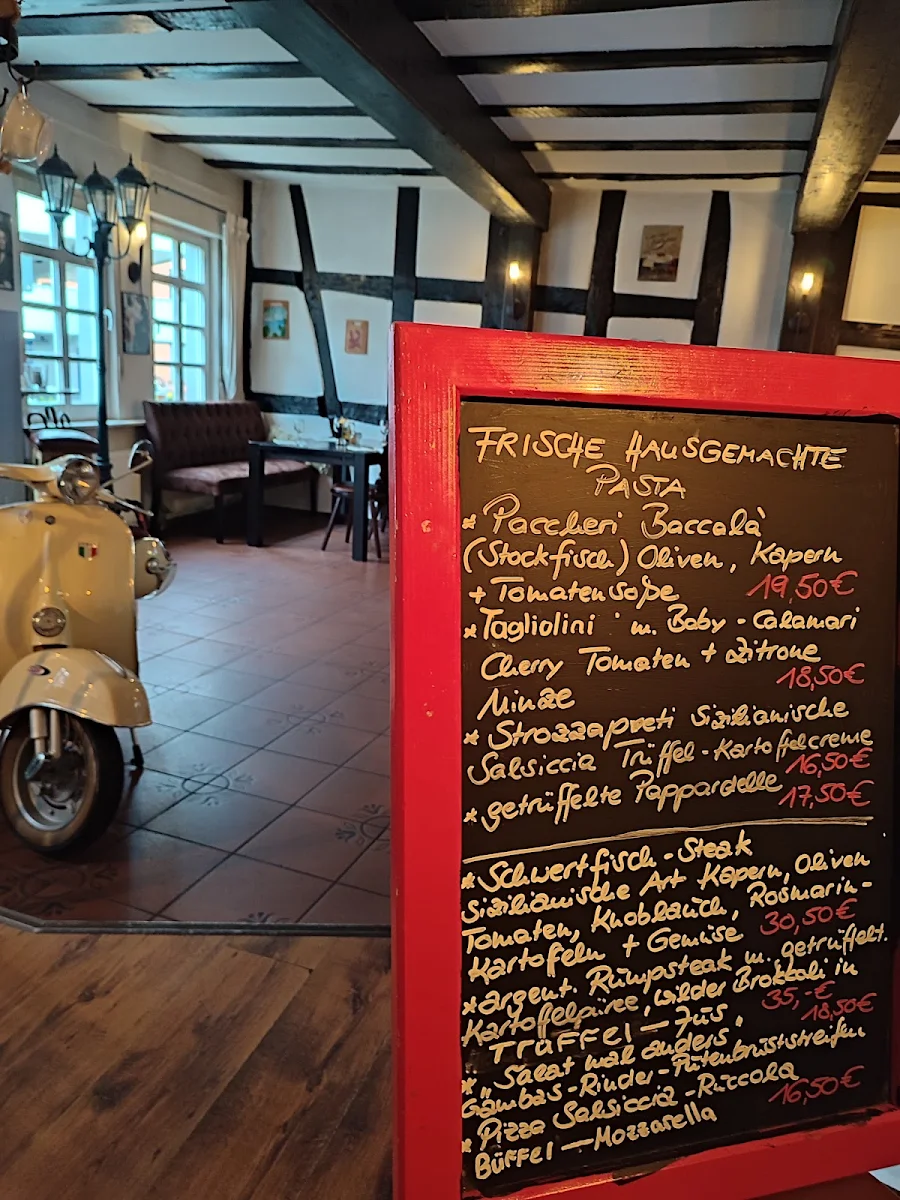 FRISCHE HAUSGEMACHTE
PASTA
* Paccheri Baccalà
(Stockfisch) Oliven, Kapern
+ Tomatensoße 19,50€
* Tagliolini m. Baby-Calamari
Cherry Tomaten + Zitrone
Minze 18,50€
* Strozzapreti Sizilianische
Salsiccia Trüffel-Kartoffelcreme
16,50€
* getrüffelte Pappardelle 17,50€
* Schwertfisch-Steak
Sizilianische Art Kapern, Oliven
Tomaten, Knoblauch, Rosmarin-
Kartoffeln + Gemüse 30,50€
* argent. Rumpsteak m. getrüffelt.
Kartoffelpüree, wilder Brokkoli in
TRÜFFEL-Jus. 35,-€
* "Salat mal anders" 18,50€
Gambas-Rinder-Putenbruststreifen
* Pizza Salsiccia-Ruccola
Büffel-Mozzarella 16,50€